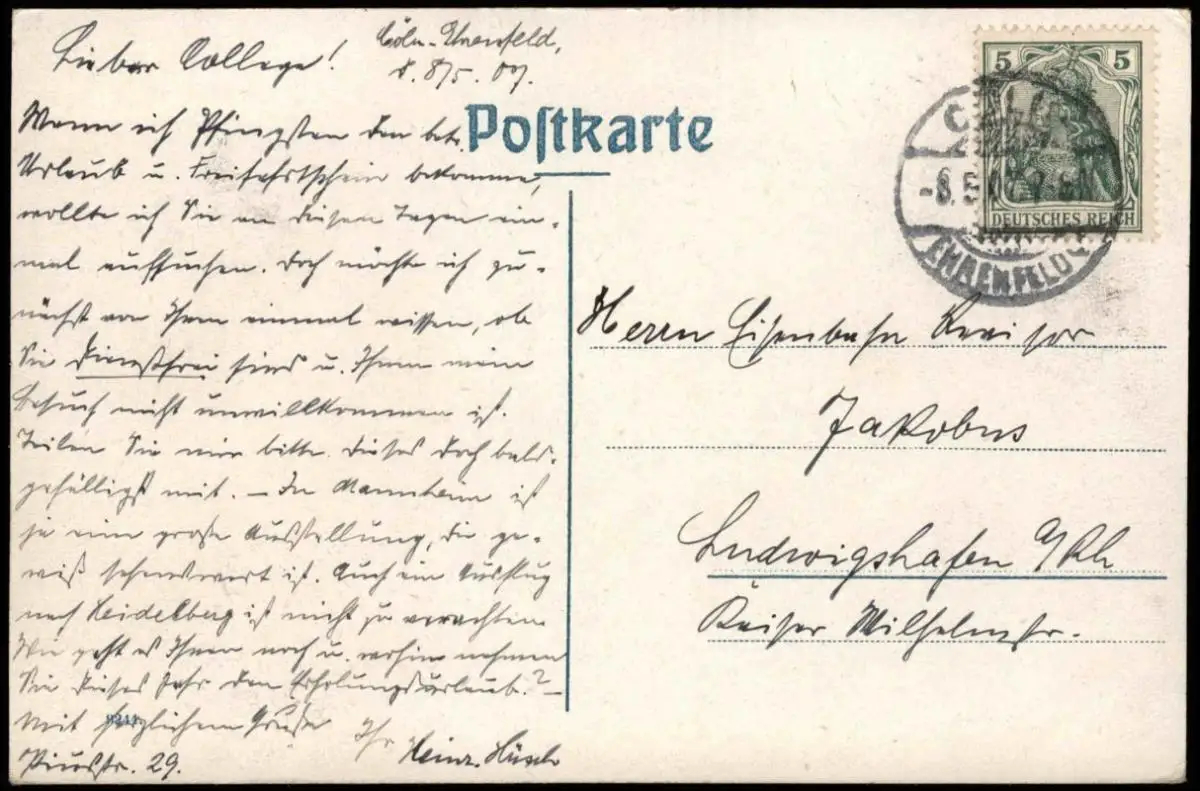 Cöln-Ehrenfeld,
d. 8/5. 07.
Lieber College!
Wenn ich Pfingsten den bet.
Urlaub u. Freifahrtschein bekomme,
wollte ich Sie an diesen Tagen ein-
mal aufsuchen. Doch möchte ich zu-
nächst von Ihnen einmal wissen, ob
Sie dienstfrei sind u. Ihnen mein
Besuch nicht unwillkommen ist.
Teilen Sie mir bitte dieses doch bald-
gefälligst mit. – In Mannheim ist
ja eine große Ausstellung, die ge-
wiß sehenswert ist. Auch ein Ausflug
nach Heidelberg ist nicht zu verachten.
Wie geht es Ihnen noch u. wohin nehmen
Sie dieses Jahr den Erholungsurlaub? –
Mit herzlichem Gruße
Ihr Heinr. Hüsch
Piusstr. 29.
Postkarte
5 5
DEUTSCHES REICH
EHRENFELD
Herrn Eisenbahn Revisor
Jakobus
Ludwigshafen a/Rh
Kaiser Wilhelmstr.